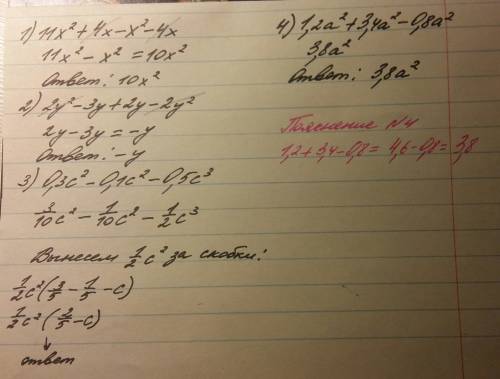 1) 11x² + 4x - x² - 4x
11x² - x² = 10x²
Ответ: 10x²
2) 2y² - 3y + 2y - 2y²
2y - 3y = -y
Ответ: -y
3) 0,3c² - 0,1c² - 0,5c³
3/10c² - 1/10c² - 1/2c³
Вынесем 1/2c² за скобки:
1/2c²(3/5 - 1/5 - c)
1/2c²(2/5 - c)
↓
ответ
4) 1,2a² + 3,4a² - 0,8a²
3,8a²
Ответ: 3,8a²
Пояснение N4
1,2+3,4-0,8 = 4,6-0,8 = 3,8